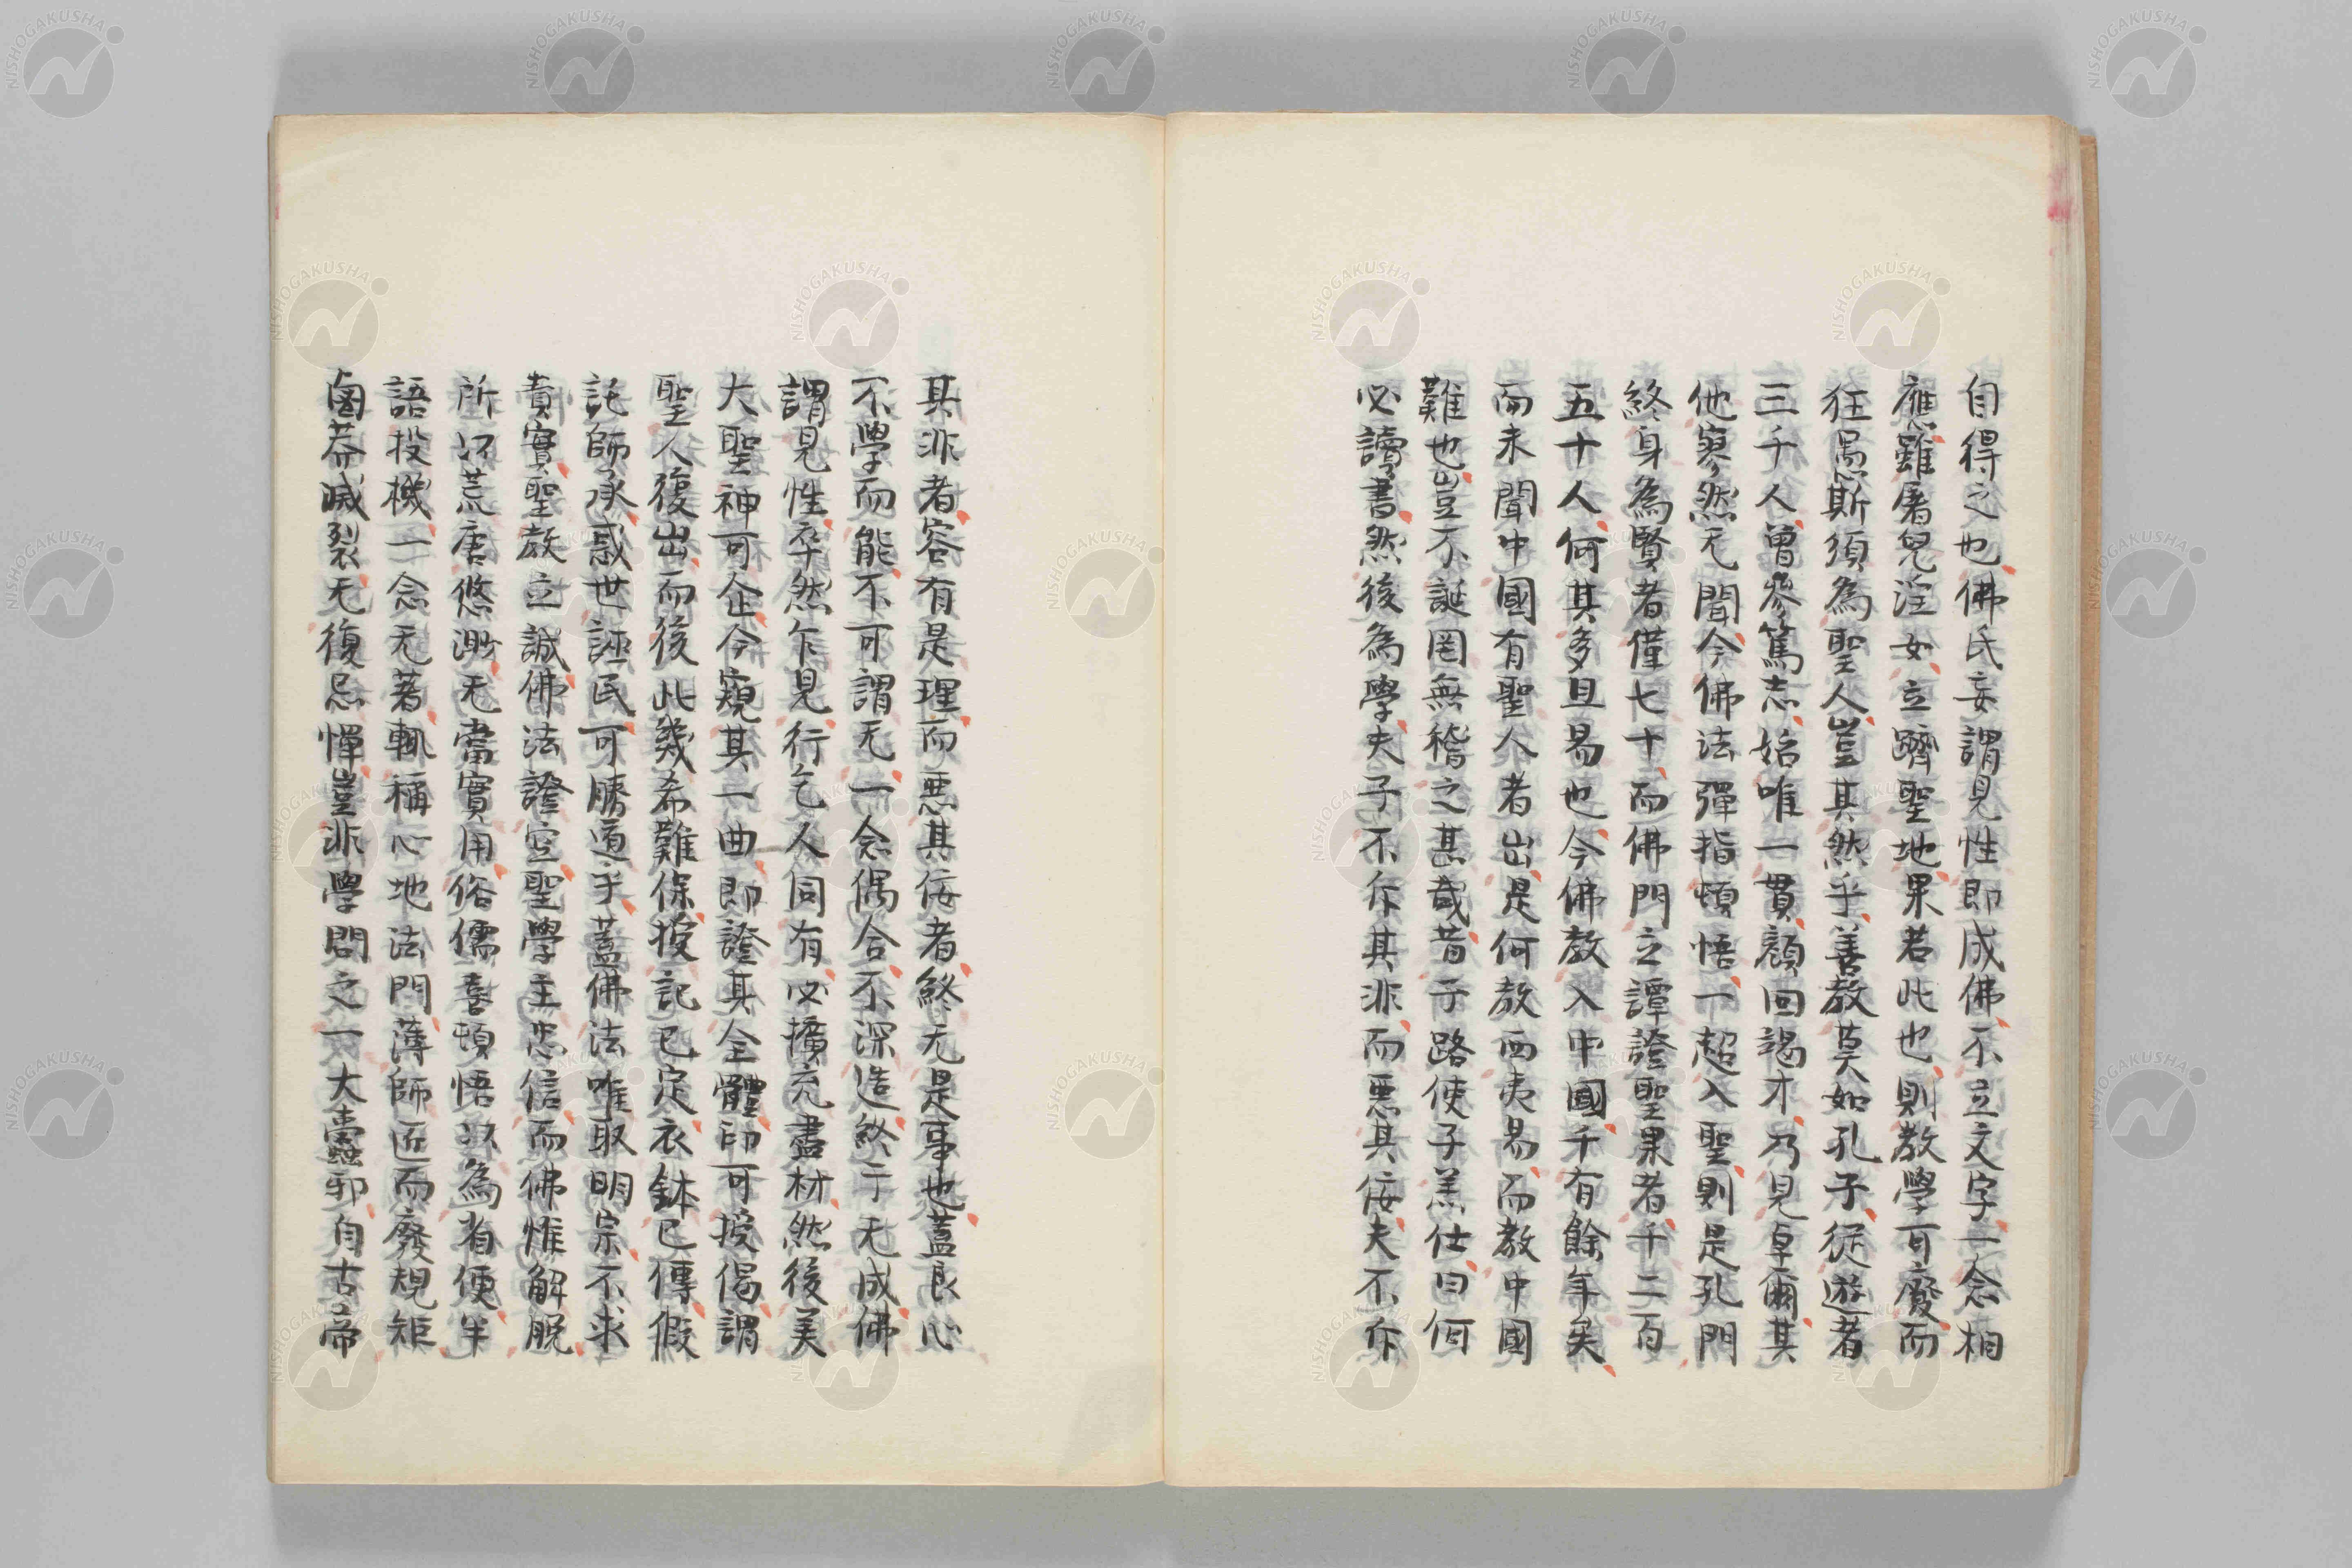 自得之也佛氏妄謂見性即成佛不立文字一念相
應雖屠兒淫女立躋聖地果若此也則教學可廢而
狂愚斯須為聖人豈其然乎善教莫如孔子從遊者
三千人曾參篤志始唯一貫顏回竭才乃見卓爾其
他寥然无聞今佛法彈指頓悟一超入聖則是孔門
終身為賢者僅七十而佛門立譚證聖果者千二百
五十人何其多且易也今佛教入中國千有餘年矣
而未聞中國有聖人者出是何教西夷易而教中國
難也豈不誕罔無稽之甚哉昔子路使子羔仕曰何
必讀書然後為學夫子不斥其非而惡其佞夫不斥
其非者容有是理而惡其佞者終无是事也蓋良心
不學而能不可謂无一念偶合不深造終于无成佛
謂見性孕然乍見行乞人同有必擴充盡材然後美
大聖神可企今窺其一曲即證其全體印可授偈謂
聖人復出而後此幾希難保授記已定衣鉢已傳假
託師承惑世誣民可勝道乎蓋佛法唯取明宗不求
責實聖教立誠佛法證空聖學主忠信而佛惟解脫
所以荒唐悠渺无當實用俗儒喜頓悟以為省便半
語投機一念无著輒稱心地法門薄師匠而廢規矩
鹵莽滅裂无復忌憚豈非學問之一大蠹邪自古帝